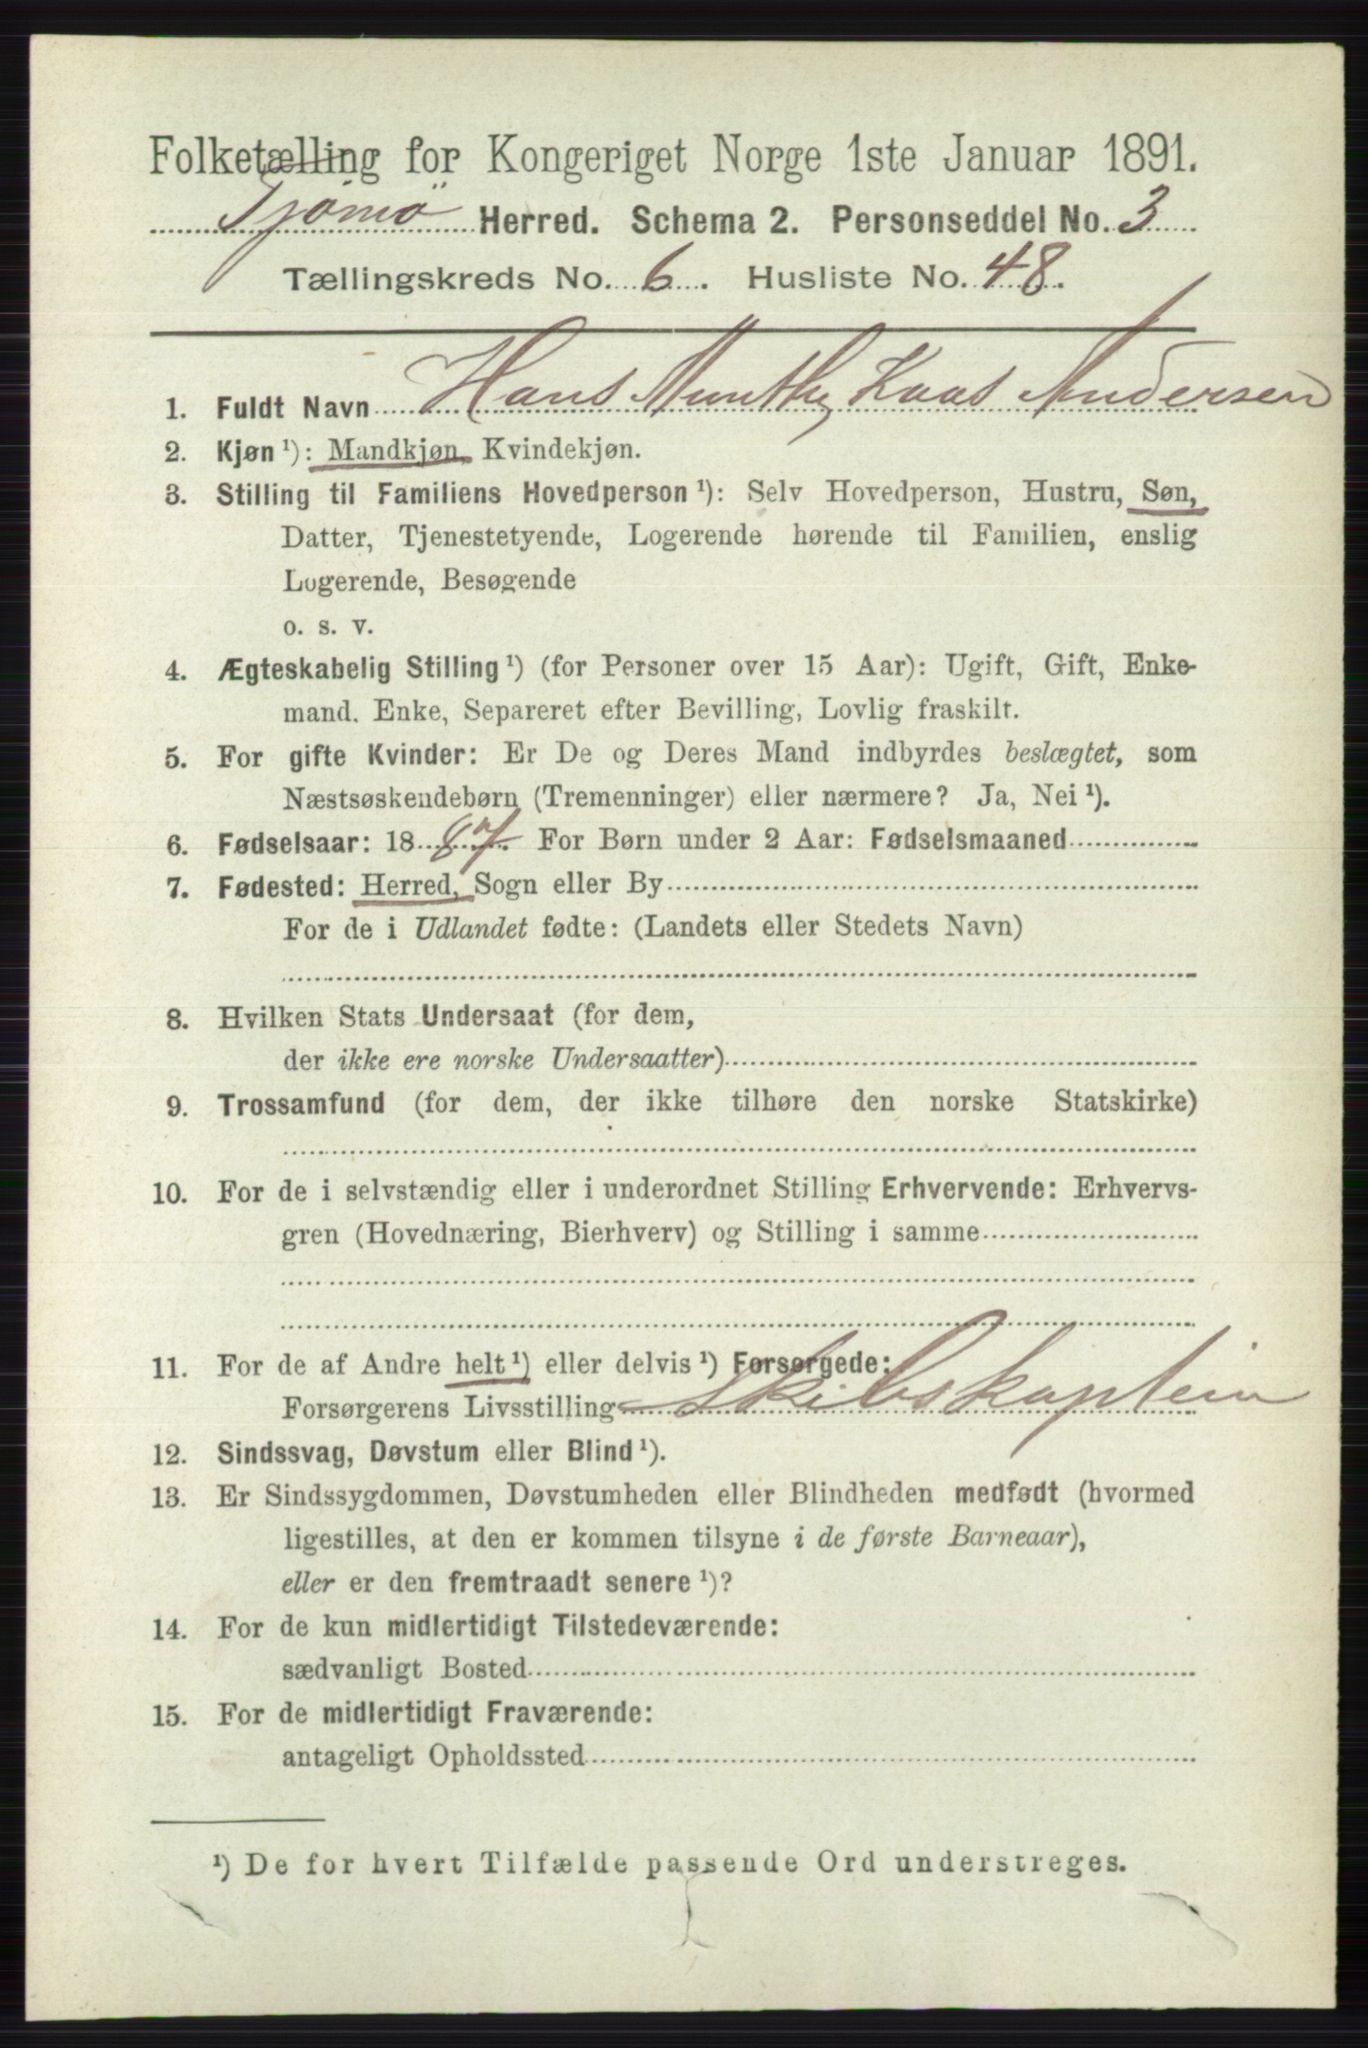 Folketælling for Kongeriget Norge 1ste Januar 1891.
Tjømö Herred. Schema 2. Personseddel No. 3
Tællingskreds No. 6. Husliste No. 48.
1. Fuldt Navn Hans Munthe Kaas Andersen
2. Kjøn ¹): Mandkjøn, Kvindekjøn.
3. Stilling til Familiens Hovedperson ¹): Selv Hovedperson, Hustru, Søn,
Datter, Tjenestetyende, Logerende hørende til Familien, enslig
Logerende, Besøgende
o. s. v.
4. Ægteskabelig Stilling ¹) (for Personer over 15 Aar): Ugift, Gift, Enke-
mand, Enke, Separeret efter Bevilling, Lovlig fraskilt.
5. For gifte Kvinder: Er De og Deres Mand indbyrdes beslægtet, som
Næstsøskendebørn (Tremenninger) eller nærmere? Ja, Nei ¹).
6. Fødselsaar: 18 87. For Børn under 2 Aar: Fødselsmaaned
7. Fødested: Herred, Sogn eller By
For de i Udlandet fødte: (Landets eller Stedets Navn)
8. Hvilken Stats Undersaat (for dem,
der ikke ere norske Undersaatter)
9. Trossamfund (for dem, der ikke tilhøre den norske Statskirke)
10. For de i selvstændig eller i underordnet Stilling Erhvervende: Erhvervs-
gren (Hovednæring, Bierhverv) og Stilling i samme
11. For de af Andre helt ¹) eller delvis ¹) Forsørgede:
Forsørgerens Livsstilling Skibskaptein
12. Sindssvag, Døvstum eller Blind ¹).
13. Er Sindssygdommen, Døvstumheden eller Blindheden medfødt (hvormed
ligestilles, at den er kommen tilsyne i de første Barneaar),
eller er den fremtraadt senere ¹)?
14. For de kun midlertidigt Tilstedeværende:
sædvanligt Bosted
15. For de midlertidigt Fraværende:
antageligt Opholdssted
¹) De for hvert Tilfælde passende Ord understreges.